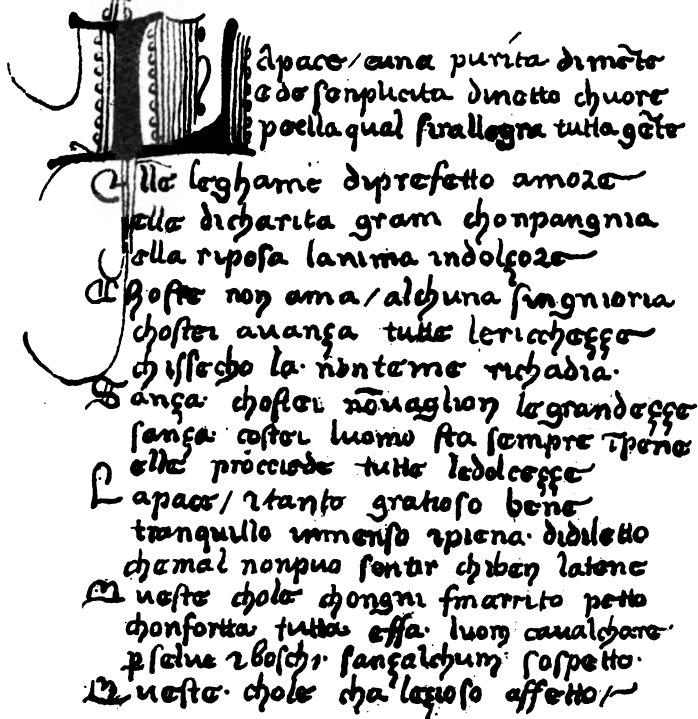 La pace / e una purita dimēte
e de senplicita dinetto chuore
per lla qual si rallegra tutta gēte
Elle leghame diprefetto amore
elle dicharita gram chonpangnia
ella riposa lanima indolçore
Choste non ama / alchuna singnioria
chostei auança tutte lericcheççe
chissecho la non teme richadia.
Sança chostei nōuaglion legrandeççe
sança costei luomo sta sempre īpene
elle procciede tutte ledolceççe
Lapace / 2tanto gratioso bene
tranquillo inmenso 2piena didiletto
chemal nonpuo sentir chiben latene
Queste chole chongni smarrito petto
chonfortta tutta essa luom caualchare
p selue 2boschi sançalchum sospetto.
Queste chole cha leçioso affetto /